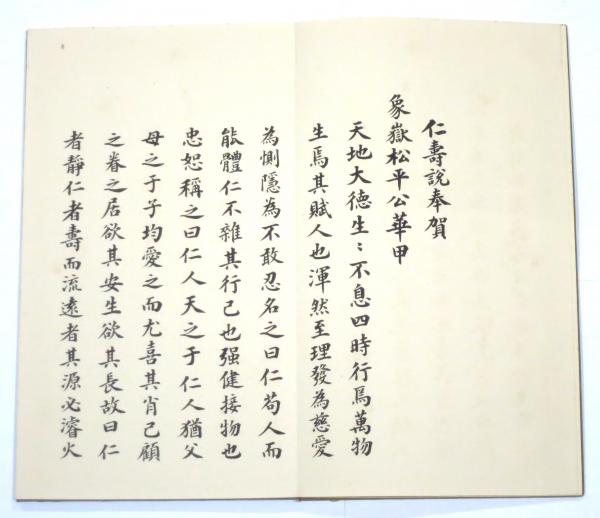 仁壽說奉賀
象嶽松平公華甲
天地大德生〻不息四時行焉萬物
生焉其賦人也渾然至理發為慈愛
為惻隱為不敢忍名之曰仁苟人而
能體仁不雜其行己也强健接物也
忠恕稱之曰仁人天之于仁人猶父
母之于子均愛之而尤喜其肖己顧
之眷之居欲其安生欲其長故曰仁
者靜仁者壽而流遠者其源必濬火